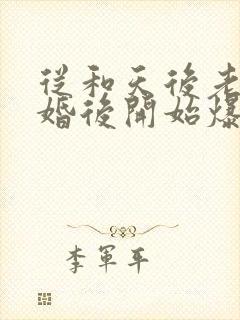 從和天後老
婚後開始爆
李軍平